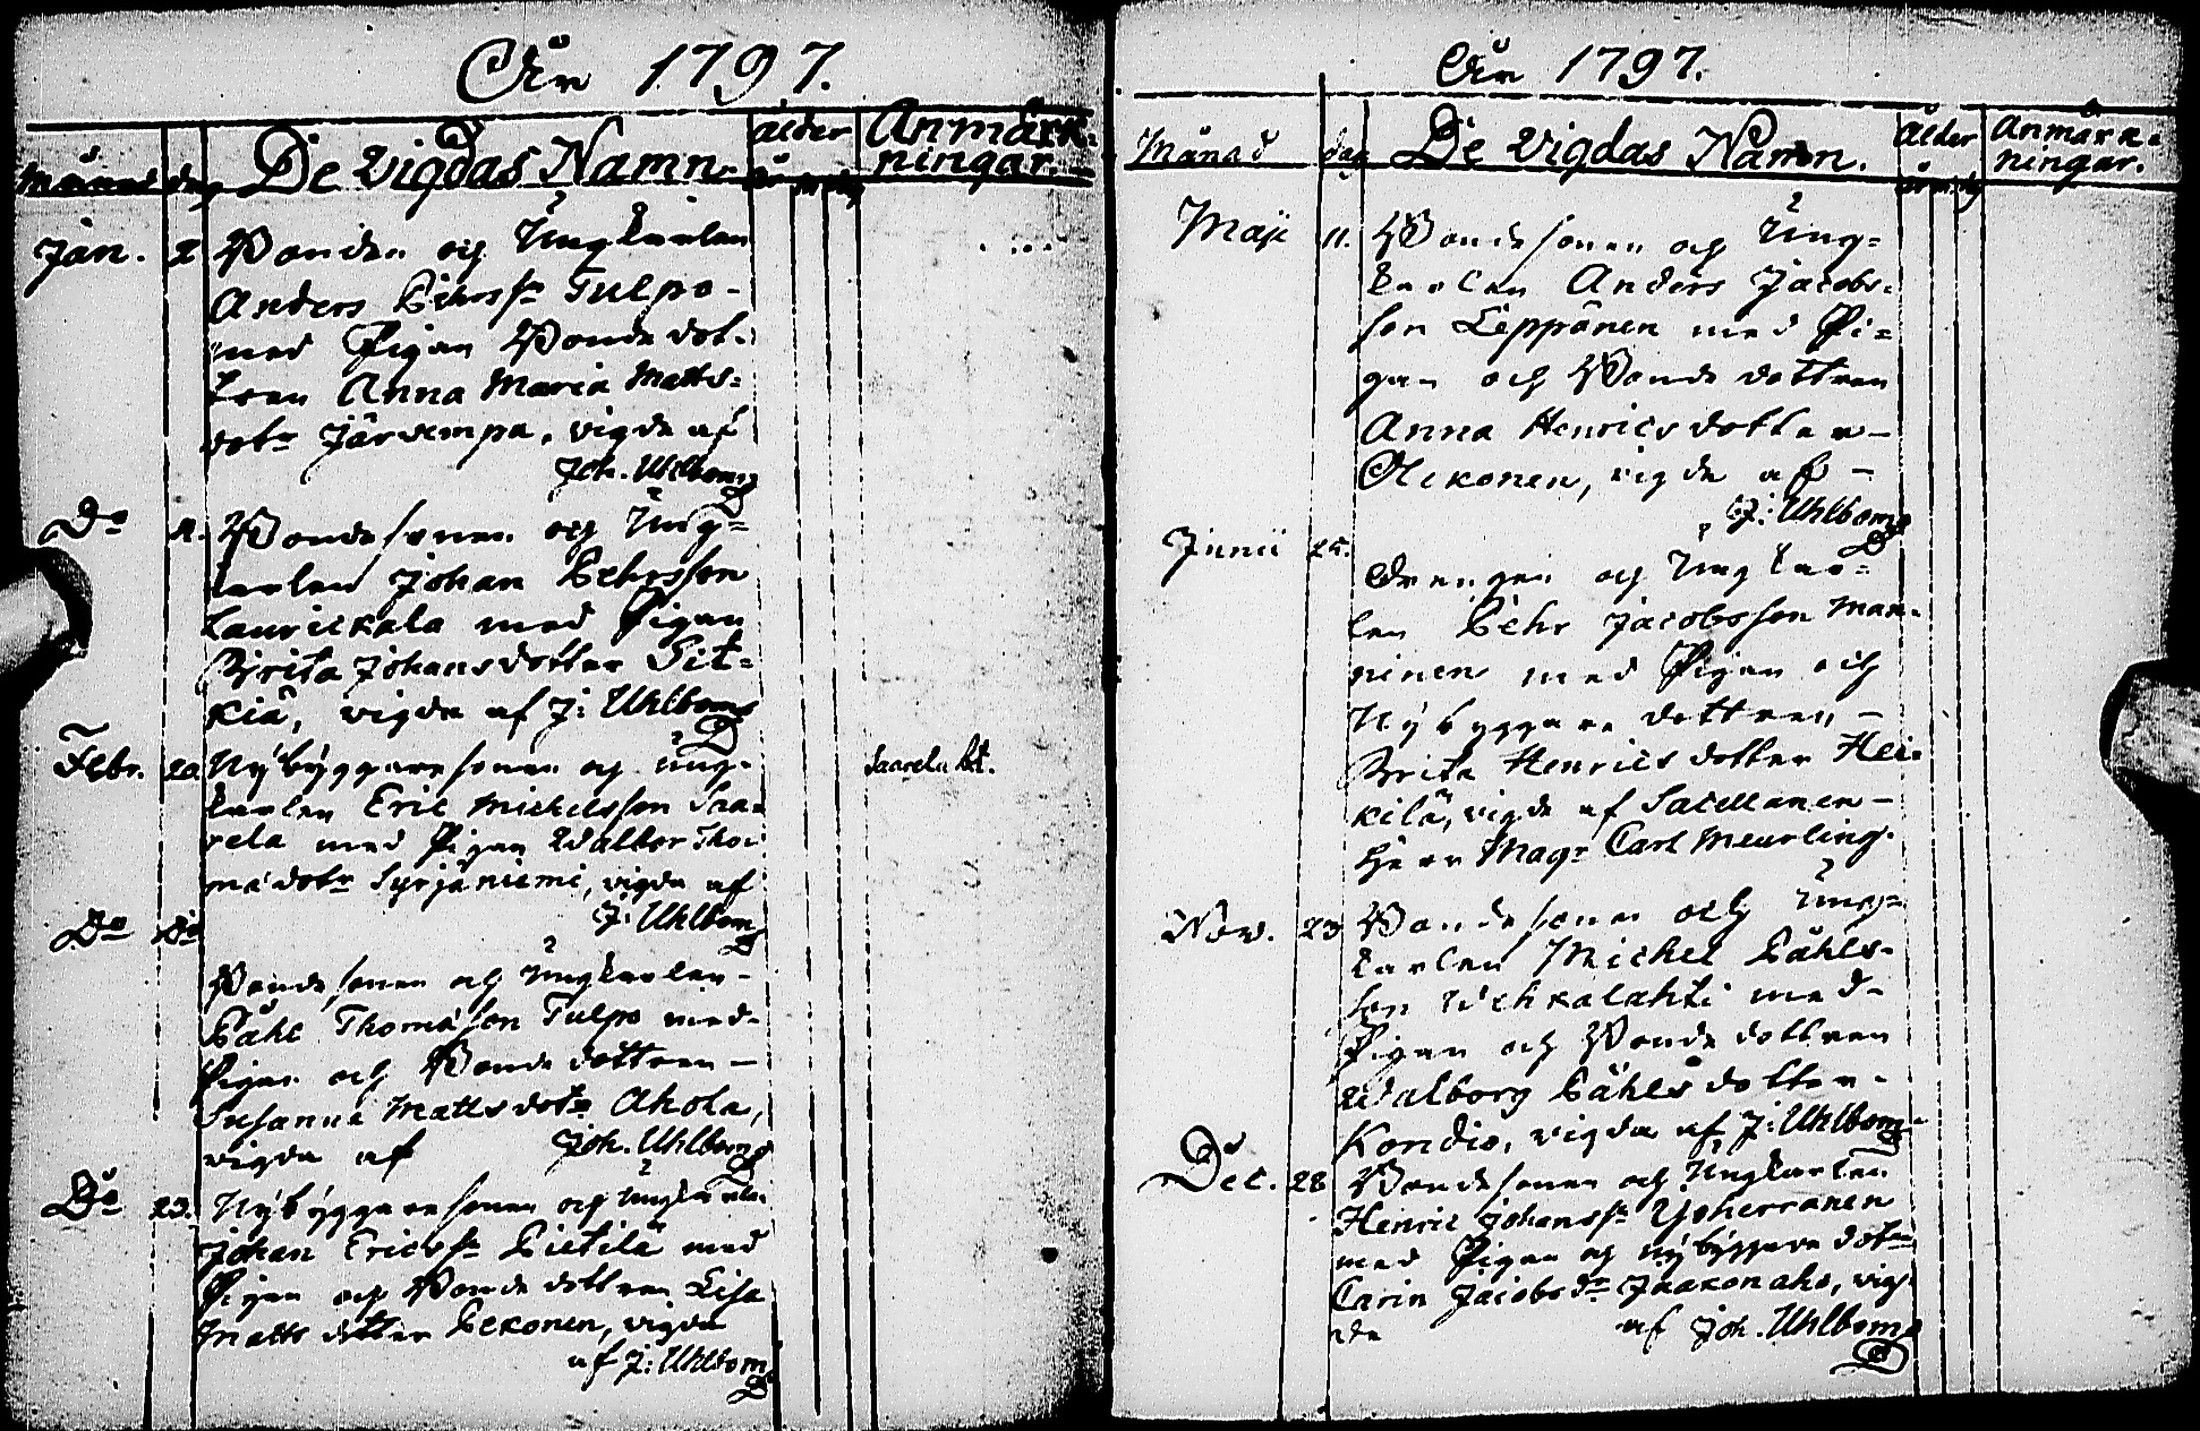 År 1797.
Månad dag De Vigdas Namn. ålder Anmärk-
ningar.
år m dg
Jan. 2 Bonden och Ungkarlen
Anders Pehrss<sup>n</sup> Tulpo-
med Pigan Bondedot-
tren Anna Maria Matts-
dot<sup>r</sup> Järvempä, vigde af
Joh. Uhlbom
D<sup>o</sup> 2. Bondesonen och Ung-
karlen Johan Pehrsson
Laurickala med Pigan
Brita Johansdotter Pit-
kiä, vigde af J: Uhlbom
Febr. 20 Nybyggaresonen och ung-
karlen Eric Michelsson Saa-
rela med Pigan Walbor Tho-
mædot<sup>r</sup> Syrjäniemi, vigde af
J: Uhlbom
Saarela
D<sup>o</sup> D<sup>o</sup>
Bondesonen och Ungkarlen-
Påhl Thomæson Tulpo med-
Pigan och Bondedottren-
Susanna Mattsdot<sup>r</sup> Ahola,
vigde af Joh. Uhlbom
D<sup>o</sup> 23. Nybyggaresonen och Ungkarlen
Johan Ericss<sup>n</sup> Pietilä med
Pigan och Bondedottren Lisa
Mattsdotter Pekonen, vigde
af J: Uhlbom
År 1797.
Månad dag De Vigdas Namn. Ålder Anmärk-
ningar.
år m dg
Maji 11. Bondesonen och Ung-
karlen Anders Jacobs-
son Leppänen med Pi-
gan och Bondedottren
Anna Henricsdotter-
Olckonen, vigde af -
J: Uhlbom
Junii 25.
Drengen och Ungkar-
len Pehr Jacobsson Man-
ninen med Pigan och
Nybyggaredottren -
Brita Henricsdotter Hei-
kilä, vigde af Sacellanen -
Herr Mag<sup>r</sup> Carl Meurling.
Nov. 23 Bondesonen och Ung-
karlen Michel Påhls-
son Wehkalahti med-
Pigan och Bondedottren
Walborg Påhlsdotter-
Kondio, vigde af J: Uhlbom
Dec. 28 Bondesonen och Ungkarlen
Henric Johanss<sup>n</sup> Ypherranen
med Pigan och nybyggaredot<sup>n</sup>
Carin Jacobsd<sup>r</sup> Jaakonaho, vig-
de af Joh. Uhlbom